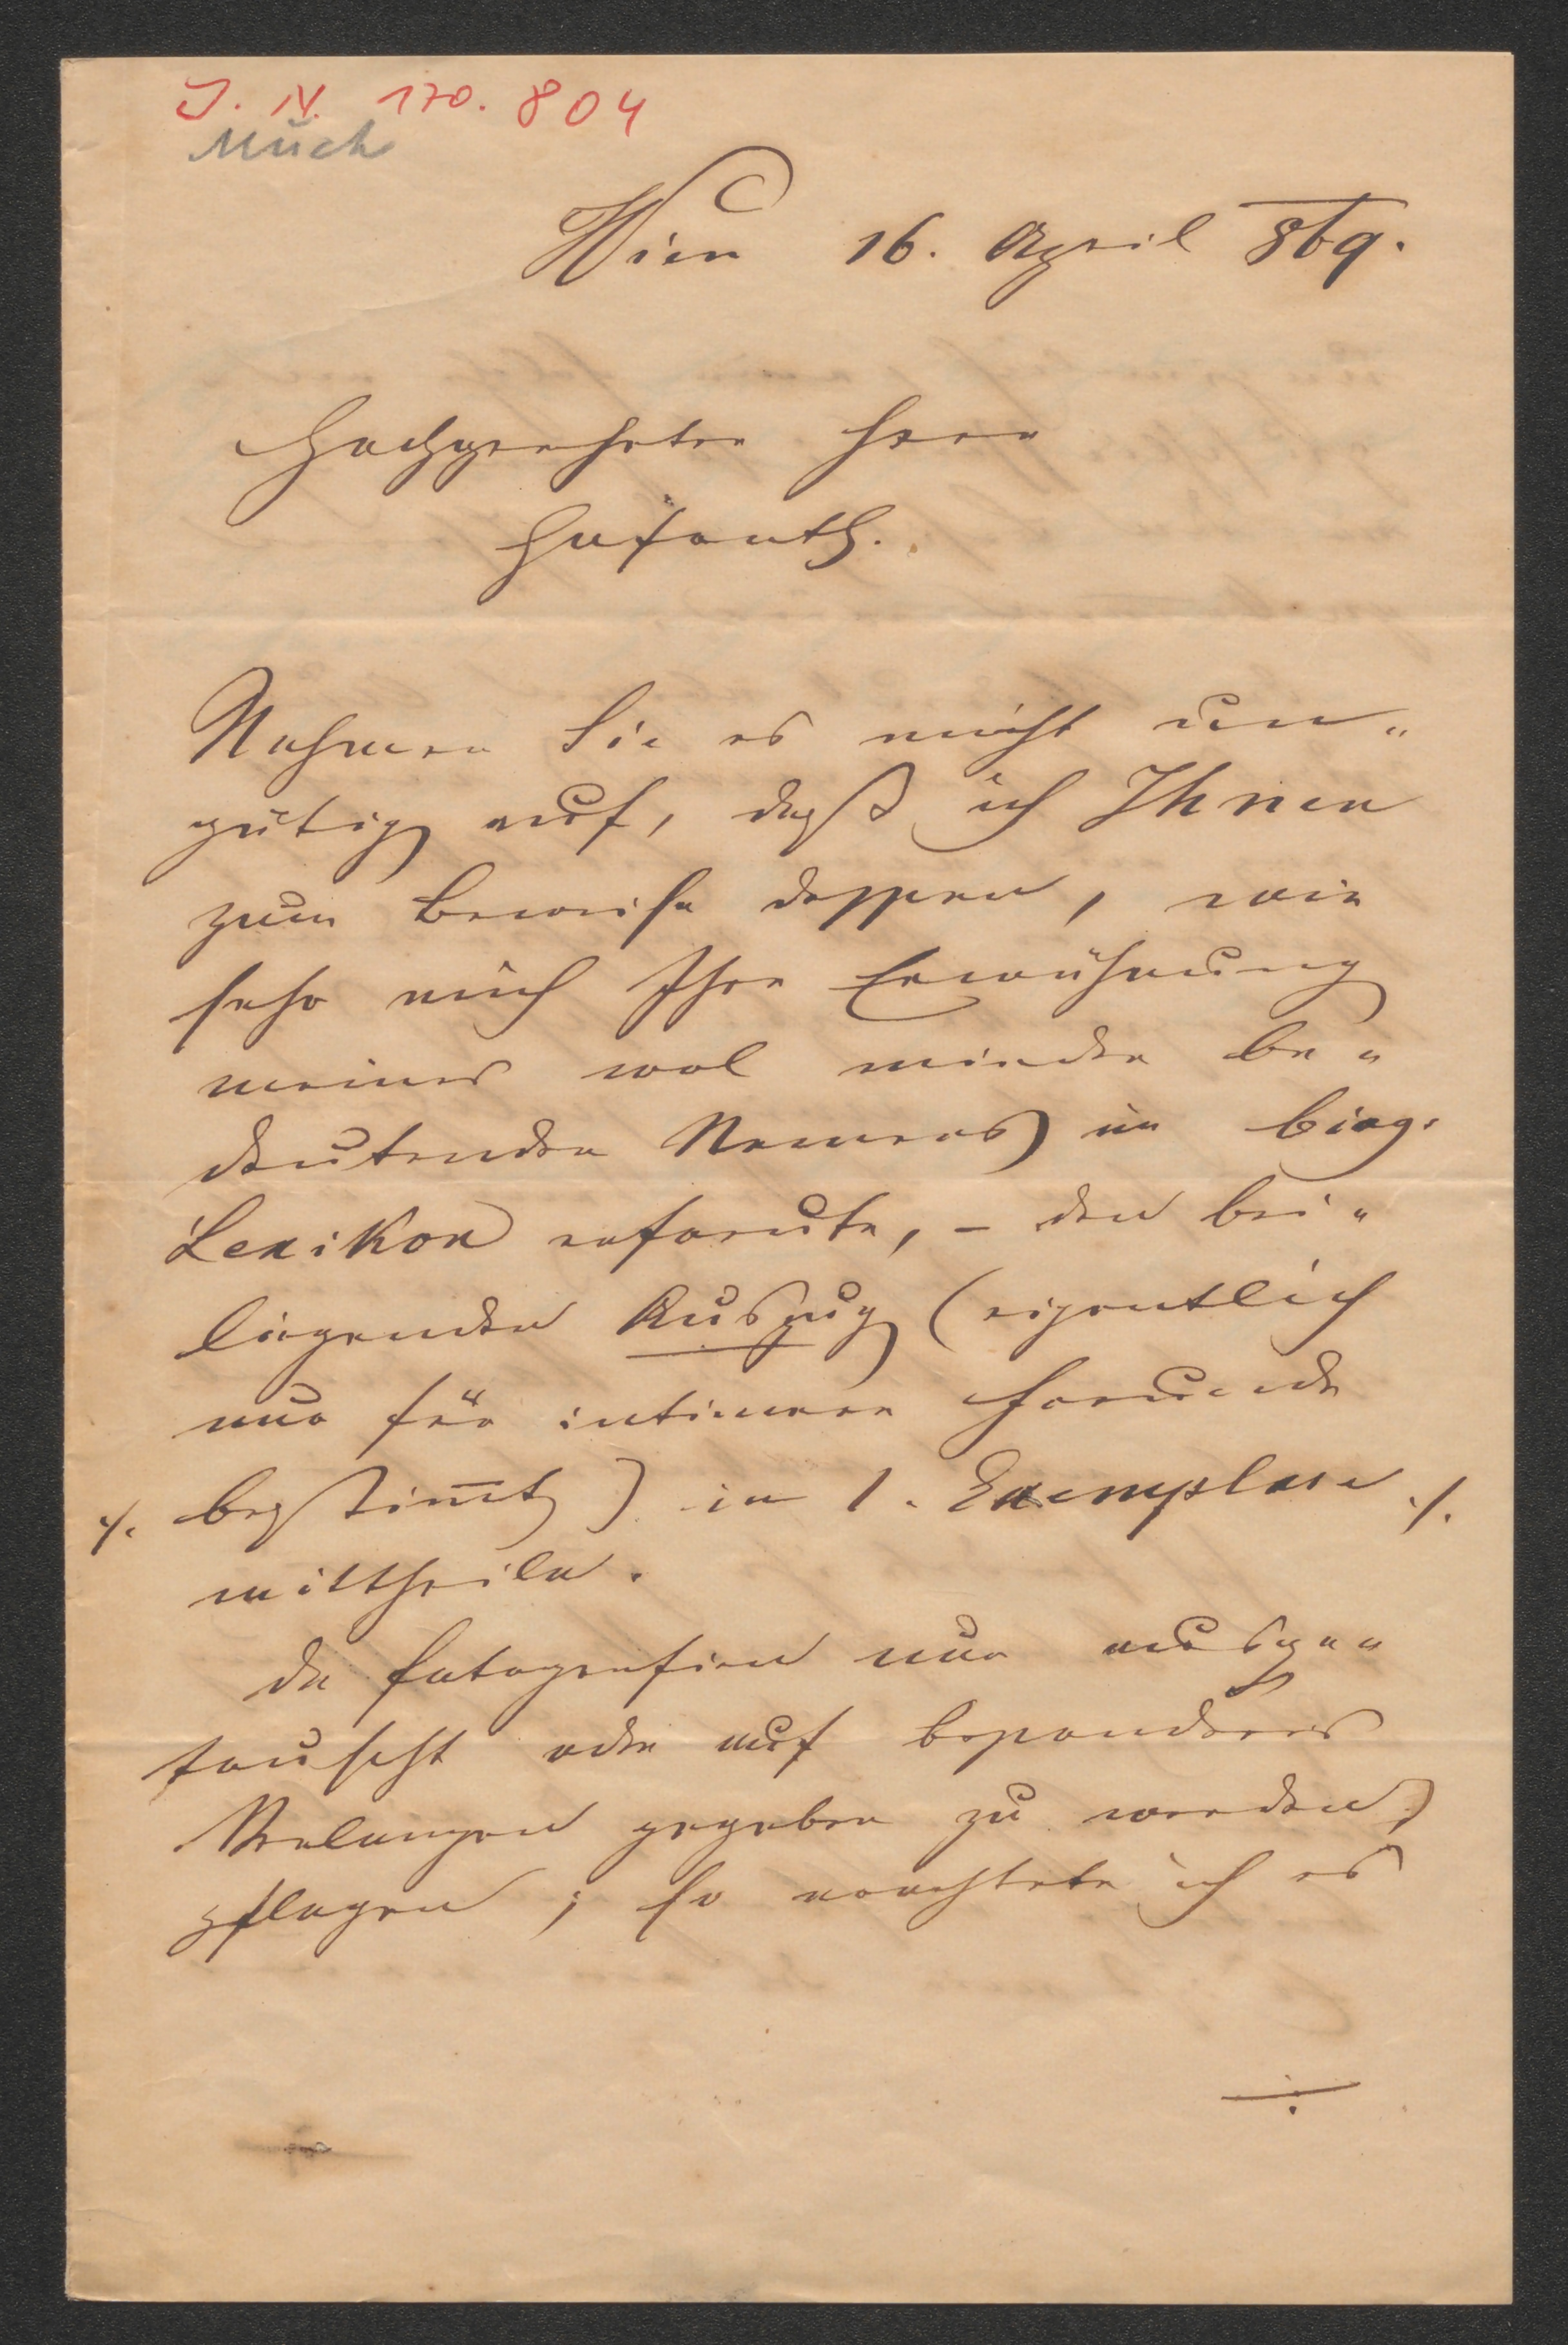 J. N. 170.804
Much
Wien 16. April 869.
Hochgeehrter Herr
Hofrath.
Nehmen Sie es nicht un„
gütig auf, daß ich Ihnen
zum Beweise dessen, wie
sehr mich Ihre Erwähnung
meines wol minder be„
deutenden Namens im biog.
Lexikon erfreute, – den bei„
liegenden Auszug (eigentlich
nur für intimere Freunde
./. bestimt) in 1. Exemplare ./.
mittheile.
Da Fotografien nur ausge„
tauscht oder auf besonderes
Verlangen gegeben zu werden
pflegen; so erachtete ich es
./.